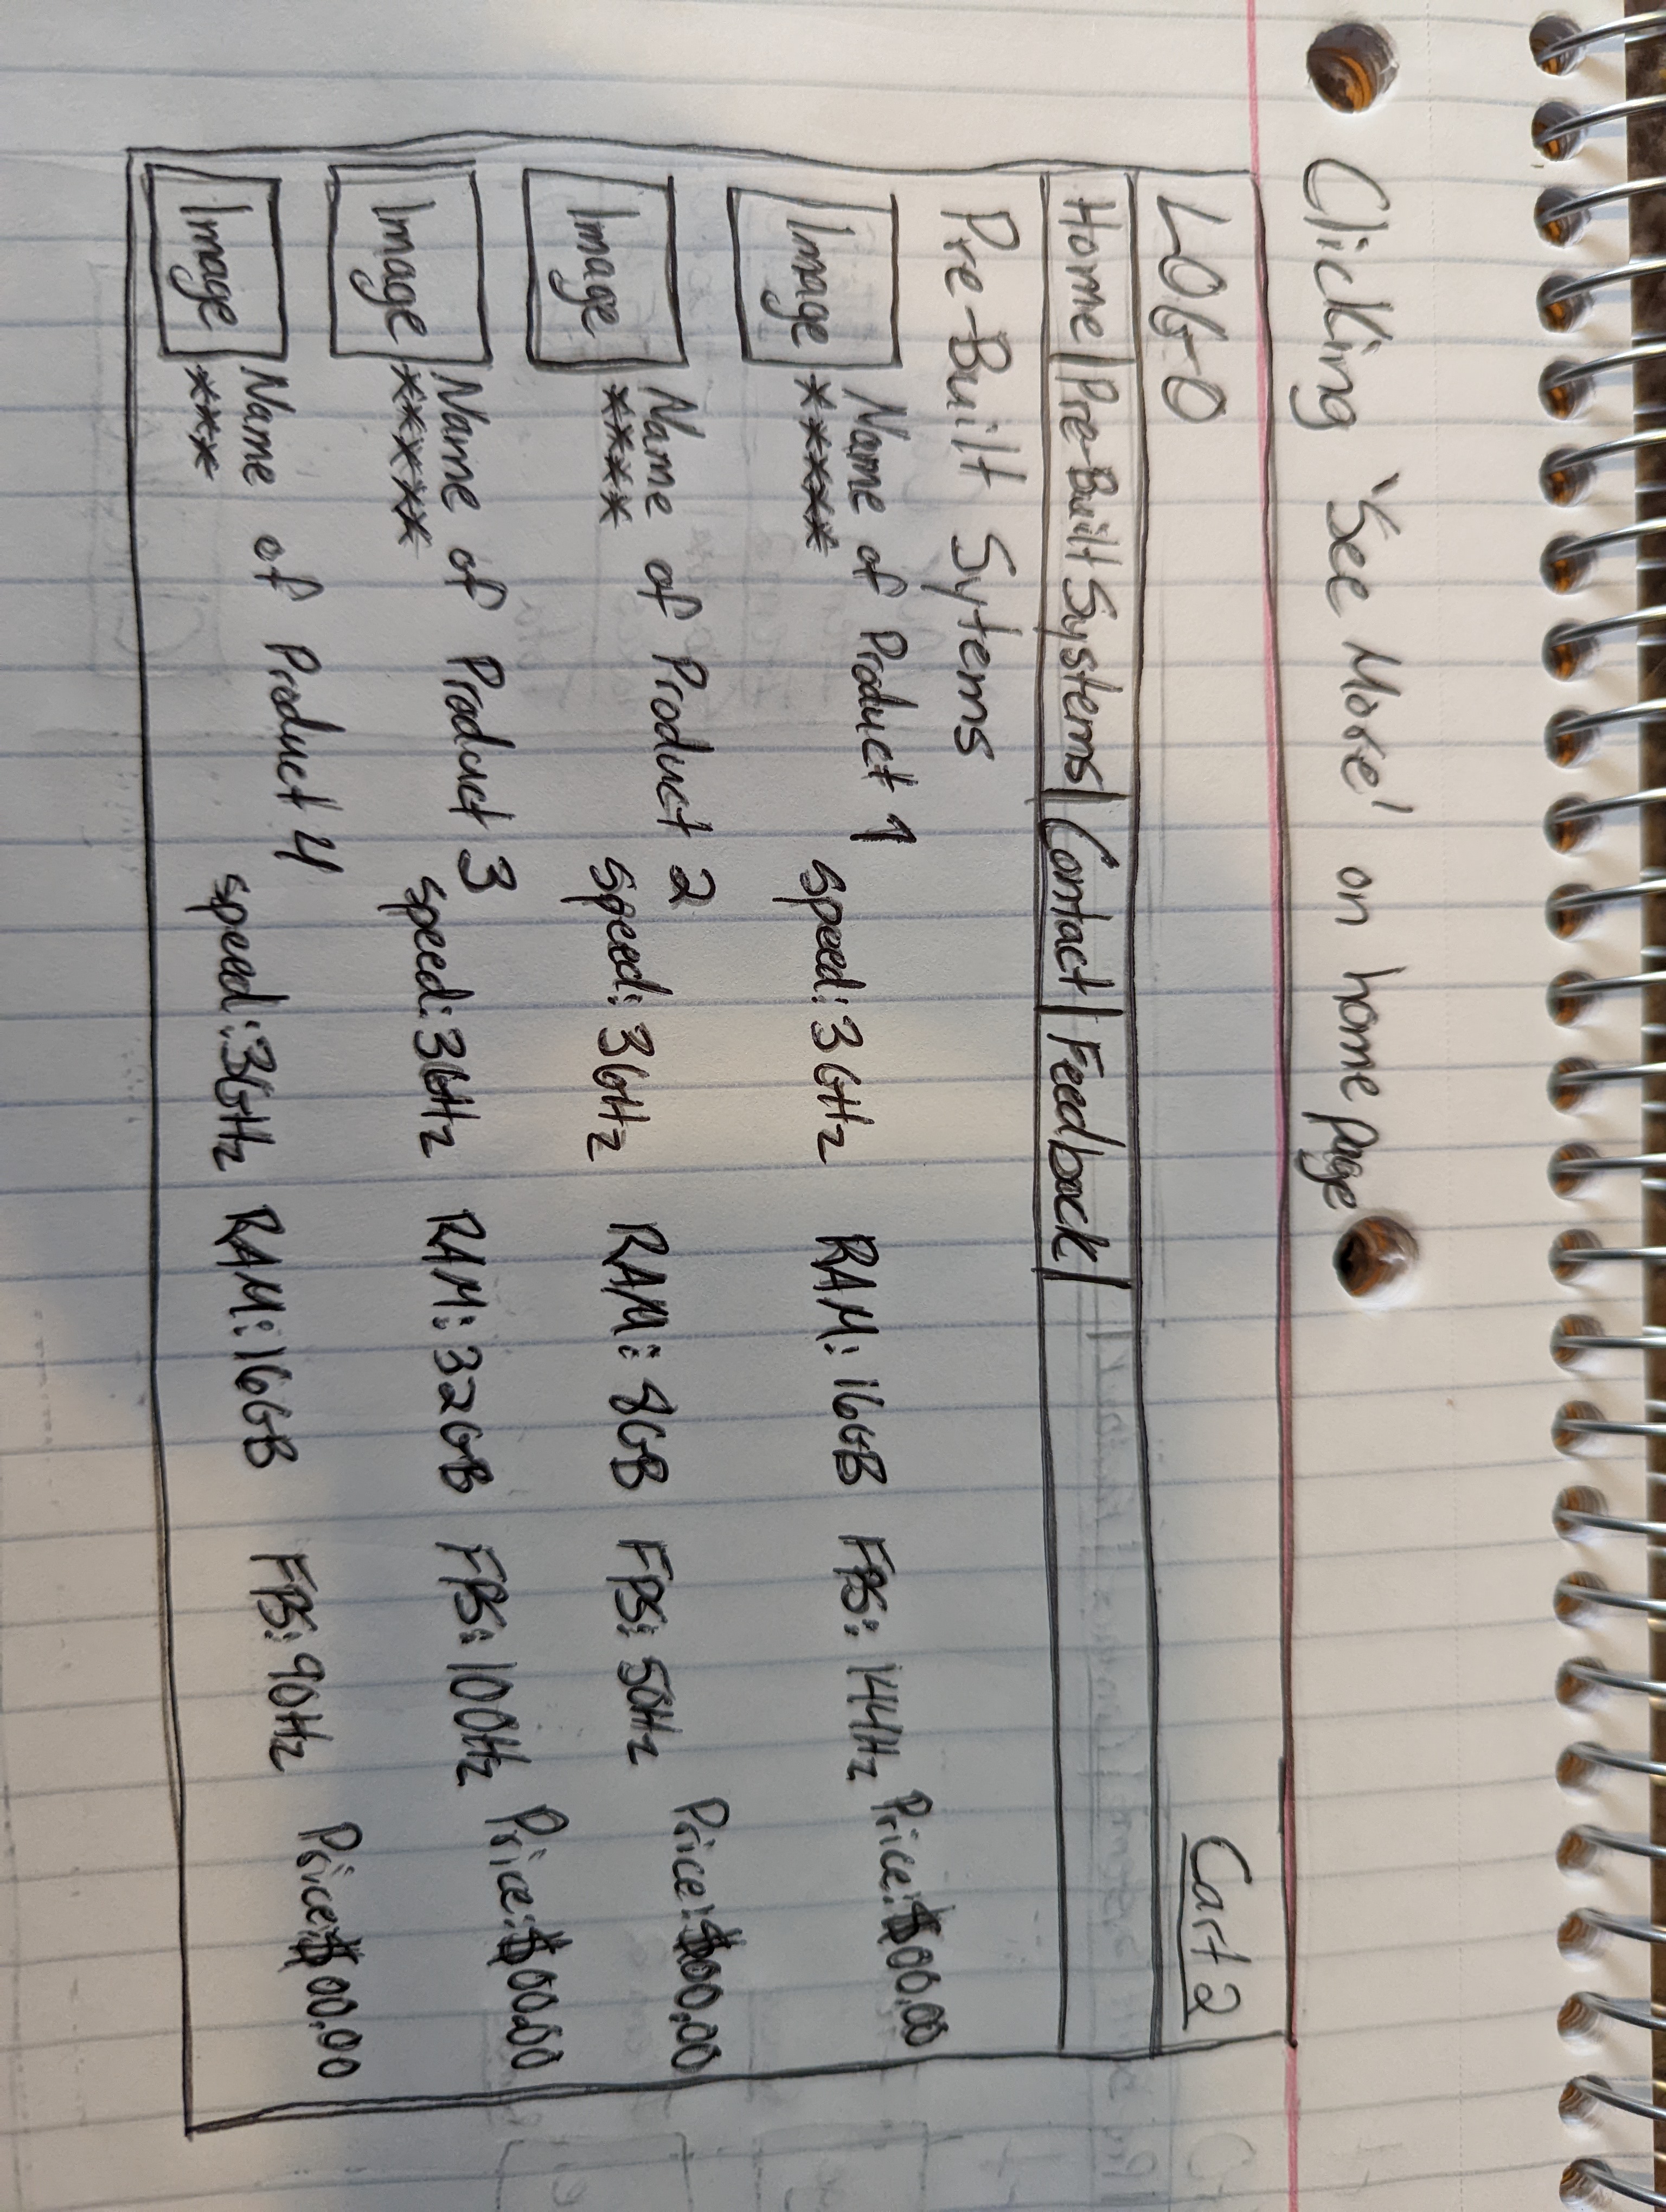 Clicking 'See More' on home page
LOGO Cart 2
Home | Pre-Built Systems | Contact | Feedback |
Pre-Built Sytems
Image Name of Product 1 speed: 3GHz RAM: 16GB FPS: 144Hz Price: $00.00
*****
Image Name of Product 2 speed: 3GHz RAM: 8GB FPS: 50Hz Price: $00.00
****
Image Name of Product 3 speed: 3GHz RAM: 32GB FPS: 100Hz Price: $00.00
*****
Image Name of Product 4 speed: 3GHz RAM: 16GB FPS: 90Hz Price: $00.00
***